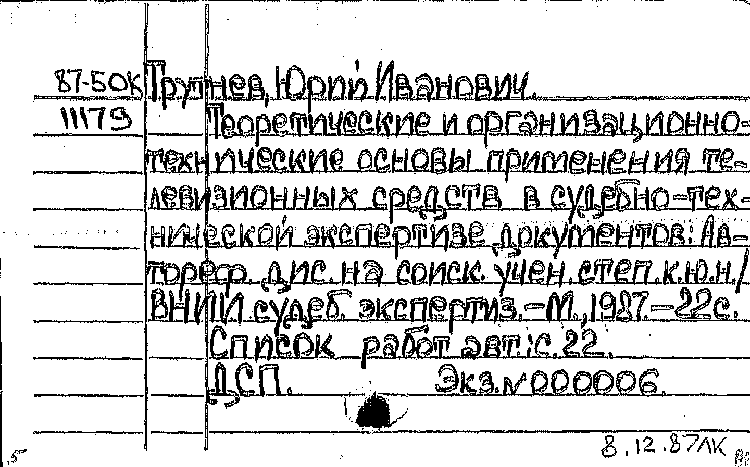 87-50К Трутнев, Юрий Иванович.
11179 Теоретические и организационно-
технические основы применения те-
левизионных средств в судебно-тех-
нической экспертизе документов: Ав-
тореф. дис. на соиск. учен. степ. к.ю.н. /
ВНИИ судеб. экспертиз. – М., 1987. – 22 с.
Список работ авт.: с. 22.
ДСП. Экз. № 000006.
8.12.87ЛК